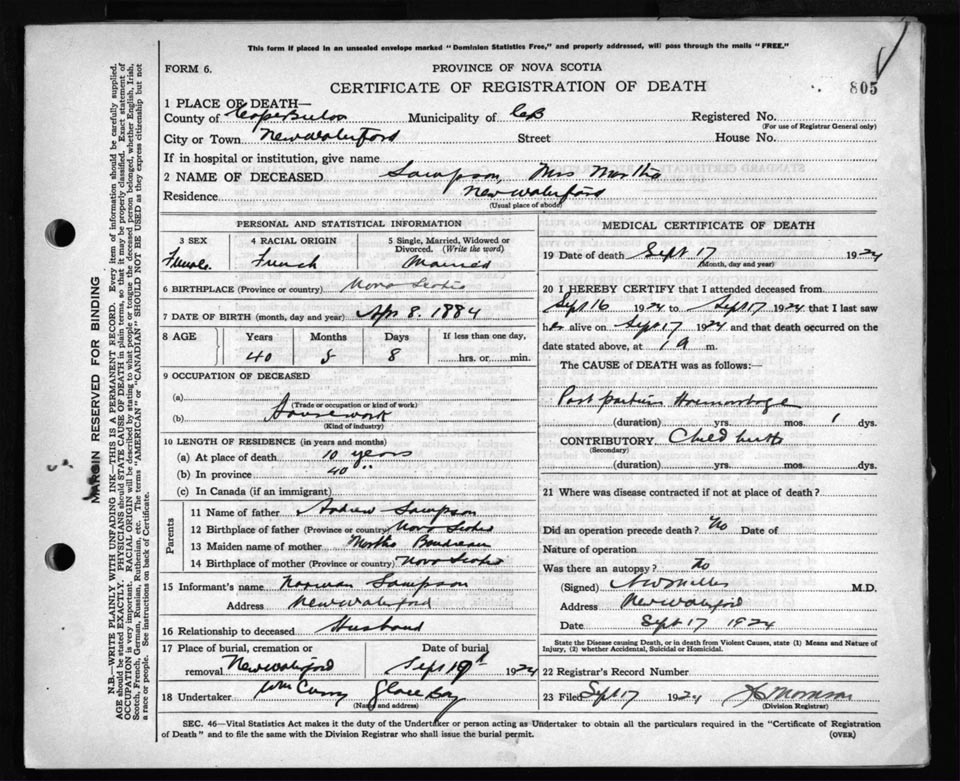 This form if placed in an unsealed envelope marked "Dominion Statistics Free," and properly addressed, will pass through the mails "FREE."
FORM 6.
PROVINCE OF NOVA SCOTIA
CERTIFICATE OF REGISTRATION OF DEATH
805
1 PLACE OF DEATH—
County of Cape Breton Municipality of CB Registered No.
(For use of Registrar General only)
City or Town New Waterford Street House No.
If in hospital or institution, give name
2 NAME OF DECEASED Sampson, Mrs Martha
Residence New Waterford
(Usual place of abode)
PERSONAL AND STATISTICAL INFORMATION
3 SEX 4 RACIAL ORIGIN 5 Single, Married, Widowed or Divorced. (Write the word)
Female French Married
6 BIRTHPLACE (Province or country) Nova Scotia
7 DATE OF BIRTH (month, day and year) Apr 8. 1884
8 AGE Years Months Days If less than one day,
40 5 8 hrs. or min.
9 OCCUPATION OF DECEASED
(a)
(Trade or occupation or kind of work)
(b) Housework
(Kind of industry)
10 LENGTH OF RESIDENCE (in years and months)
(a) At place of death 10 years
(b) In province 40 "
(c) In Canada (if an immigrant)
Parents
11 Name of father Andrew Sampson
12 Birthplace of father (Province or country) Nova Scotia
13 Maiden name of mother Martha Boudreau
14 Birthplace of mother (Province or country) Nova Scotia
15 Informant's name Norman Sampson
Address New Waterford
16 Relationship to deceased Husband
17 Place of burial, cremation or removal New Waterford Date of burial Sept 19th 1924
18 Undertaker Wm Curry Glace Bay
(Name and address)
MEDICAL CERTIFICATE OF DEATH
19 Date of death Sept 17 1924
(Month, day and year)
20 I HEREBY CERTIFY that I attended deceased from
Sept 16 1924 to Sept 17 1924 that I last saw
her alive on Sept 17 1924 and that death occurred on the
date stated above, at 1 a m.
The CAUSE of DEATH was as follows:—
Post partum Haemorrhage
(duration) yrs. mos. 1 dys.
CONTRIBUTORY. Child birth
(Secondary)
(duration) yrs. mos. dys.
21 Where was disease contracted if not at place of death?
Did an operation precede death? No Date of
Nature of operation
Was there an autopsy? No
(Signed) M.D.
Address New Waterford
Date Sept 17 1924
State the Disease causing Death, or in death from Violent Causes, state (1) Means and Nature of
Injury, (2) whether Accidental, Suicidal or Homicidal.
22 Registrar's Record Number
23 Filed Sept 17 1924
(Division Registrar)
SEC. 46—Vital Statistics Act makes it the duty of the Undertaker or person acting as Undertaker to obtain all the particulars required in the "Certificate of Registration
of Death" and to file the same with the Division Registrar who shall issue the burial permit.
(OVER)
MARGIN RESERVED FOR BINDING
N.B.—WRITE PLAINLY WITH UNFADING INK—THIS IS A PERMANENT RECORD. Every item of information should be carefully supplied.
AGE should be stated EXACTLY. PHYSICIANS should STATE CAUSE OF DEATH in plain terms, so that it may be properly classified. Exact statement of
OCCUPATION is very important. RACIAL ORIGIN will be described by stating to what people or tongue the deceased person belonged, whether English, Irish,
Scotch, French, German, Russian, Ruthenian, etc. The terms "AMERICAN" or "CANADIAN" SHOULD NOT BE USED as they express citizenship but not
a race or people. See instructions on back of Certificate.